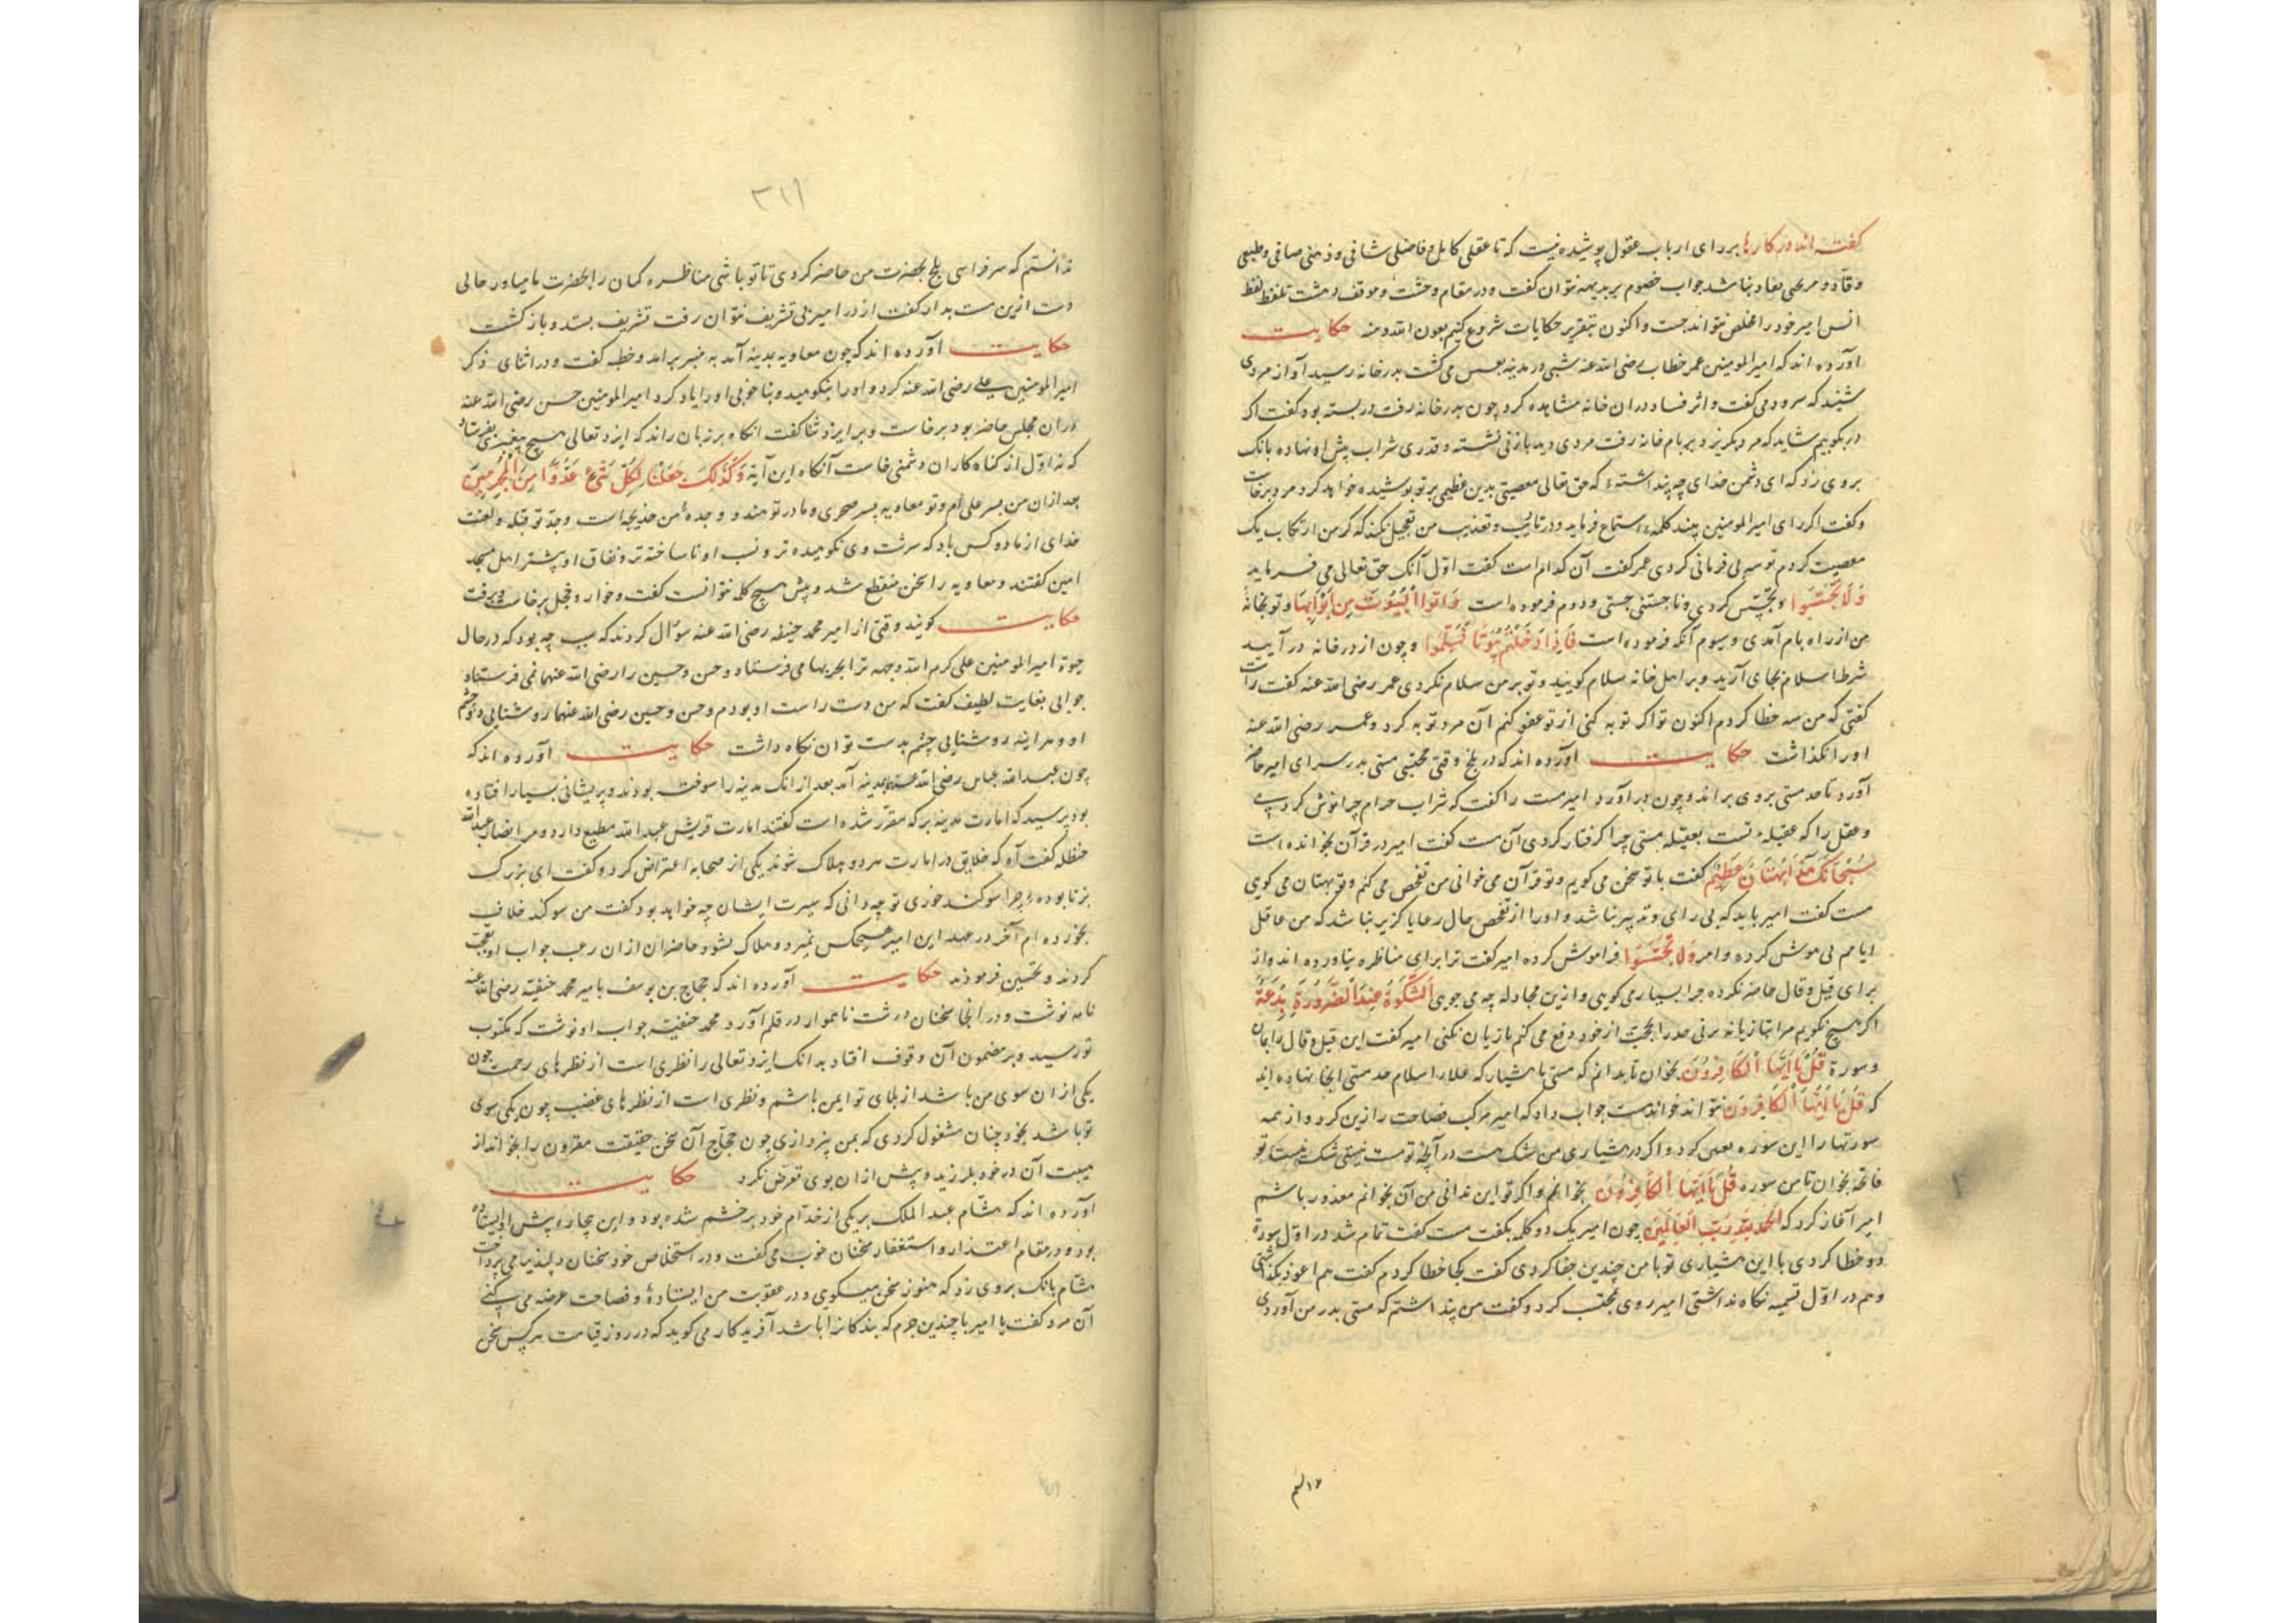 گفته اند در کارها بر رای ارباب عقول پوشیده نیست که تا عقلی کامل و فاضلی شافی و ذهنی صافی و طبعی
وقاد و مربحی نقاد نباشد جواب خصوم بر بدیهه نتوان گفت و در مقام وحشت و موقف دهشت تلفظ لفظ
انس امیر خود را مخلص نتواند جست و اکنون بتقریر حکایات شروع کنیم بعون الله و منه حکایت
آورده اند که امیر المومنین عمر خطاب رضی الله عنه شبی در مدینه بعسس می گشت بدر خانه رسید آواز مردی
شنید که سرود می گفت و اثر فساد در ان خانه مشاهده کرد چون بدر خانه رفت در بسته بود گفت اکر
در بکوبیم شاید که مرد بکریزد بر بام خانه رفت مردی دید با زنی نشسته و قدری شراب پیش او نهاده بانک
بر وی زد که ای دشمن خدای چه پنداشتهٔ که حق تعالی معصیتی بدین عظیمی بر تو پوشیده خواهد کرد مرد برخاست
و گفت اکر رای امیر المومنین پیند کلمه استماع فرماید و در تادیب و تعذیب من تعجیل نکند که کر من ارتکاب یک
معصیت کردم تو سه بی فرمانی کردی عمر گفت آن کدام است گفت اول آنک حق تعالی می فرماید
وَلَا تَجَسَّسُوا و تجسس کردی و ناجستنی جستی و دوم فرموده است وَاتُوا الْبُیُوتَ مِنْ اَبْوَابِهَا و تو بخانه
من از راه بام آمدی و سیوم آنکه فرموده است فَاِذَا دَخَلْتُمْ بُیُوتًا فَسَلِّمُوا و چون از در خانه در آیید
شرط اسلام بجای آرید و بر اهل خانه سلام کویید و تو بر من سلام نکردی عمر رضی الله عنه گفت راست
گفتی که من سه خطا کردم اکنون تو اکر توبه کنی از تو عفو کنم آن مرد توبه کرد و عمر رضی الله عنه
او را بگذاشت حکایت آورده اند که در بلخ وقتی محتسبی مستی بدر سرای امیر حاضر
آورد تا حد مستی بر وی براند و چون در آورد امیر مست را گفت که شراب حرام چرا نوش کردی
و عقل را که عقیلهٔ تست بعقیله مستی چرا کرفتار کردی آن مست گفت امیر در قرآن نخوانده است
سُبْحَانَکَ هَذَا بُهْتَانٌ عَظِیمٌ گفت با تو سخن می کویم و تو قرآن می خوانی من تفحص می کنم و تو بهتان می کوی
مست گفت امیر باید که بی رای و تدبیر نباشد و او را از تفحص حال رعایا کزیر نباشد که من عاقل
ایام می بی موش کرده و امر وَلَا تَجَسَّسُوا فراموش کرده امیر گفت ترا برای مناظره نیاورده اند و از
برای قیل و قال حاضر نکرده چرا بسیار می کویی و ازین مجادله چه می جویی اَلشَّکْوَةُ عِنْدَ الضَّرُورَةِ بِدْعَةٌ
اکر هیچ نکویم مرا بتازیانه بزنی حد را بحجت از خود دفع می کنم با زیان نکنی امیر گفت این قیل و قال را بمان
و سورة قُلْ یَا اَیُّهَا الْکَافِرُونَ بخوان تا بدانم که مستی یا هشیار که علماء اسلام حد مستی اینجا نهاده اند
که قُلْ یَا اَیُّهَا الْکَافِرُونَ نتواند خواند مست جواب داد که امیر مرکب فصاحت را زین کرد و از همه
سورتها را این سوره تعیین کرد و اکر در هشیاری من شک هست در آنچه تو مست نیستی شک نیست تو
فاتحه بخوان تا من سوره قُلْ یَا اَیُّهَا الْکَافِرُونَ بخوانم و اکر تو این ندانی من آن نخوانم معذور باشم
امیر آغاز کرد که اَلْحَمْدُ لِلّٰهِ رَبِّ الْعَالَمِینَ چون امیر یک دو کلمه بگفت مست گفت تمام شد در اول سورة
دو خطا کردی با این هشیاری تو با من چندین جفا کردی گفت کجا خطا کردم گفت هم اعوذ بگذاشتی
و هم در اول تسمیه نکاه نداشتی امیر روی بمحتسب کرد و گفت من پنداشتم که مستی بدر من آوردی
۲۱۱
ندانستم که سر فراسی بلخ بحضرت من حاضر کردی تا تو باشی مناظره کمان را بحضرت ما میاور حالی
دست ازین مست بدار گفت از در امیر بی تشریف نتوان رفت تشریف بستد و باز کشت
حکایت آورده اند که چون معاویه بمدینه آمد به منبر برامد و خطبه گفت و در اثنای ذکر
امیر المومنین علی رضی الله عنه کرد و او را بنکوهید و بناخوبی او را یاد کرد امیر المومنین حسن رضی الله عنه
در ان مجلس حاضر بود برخاست و بر ایزد ثنا گفت انکاه بر زبان راند که ایزد تعالی هیچ پیغمبری نفرستاد
که نه اول از کناه کاران دشمنی خاست آنکاه این آیة وَکَذٰلِکَ جَعَلْنَا لِکُلِّ شَیْءٍ عَدُوًّا مِنَ الْمُجْرِمِینَ
بعد ازان من پسر علی ام و تو معاویه پسر صحری و مادر تو هند و وجدهٔ من خدیجه است وجدة تو قبله و لعنت
خدای از ما دو کس باد که سرشت وی نکوهیده تر و نسب او ناساخته تر و نفاق او پیشتر اهل مسجد
امین گفتند و معاویه را سخن منقطع شد و پیش هیچ کلمه نتوانست گفت و خوار و خجل برخاست و برفت
حکایت کویند وقتی از امیر محمد حنیفه رضی الله عنه سوال کردند که سبب چه بود که در حال
حیوة امیر المومنین علی کرم الله وجهه ترا بحربها می فرستاد و حسن و حسین را رضی الله عنهما نمی فرستاد
جوابی بغایت لطیف گفت که من دست راست او بودم و حسن و حسین رضی الله عنهما روشنایی دو چشم
او و هراینه روشنایی چشم بدست توان نکاه داشت حکایت آورده اند که
چون عبد الله عباس رضی الله عنه بمدینه آمد بعد از انک مدینه را سوخته بودند و پریشانی بسیار افتاده
بود پرسید که امارت مدینه بر که مقرر شده است گفتند امارت قریش عبد الله مطیع دارد و مر انصار عبد الله
حنظله گفت آه که خلایق در امارت هر دو هلاک شوند یکی از صحابه اعتراض کرد و گفت ای بزرک
بزنا بوده چرا سوکند خوری تو چه دانی که سیرت ایشان چه خواهد بود گفت من سوکند خلاف
نخورده ام آخر در عهد این امیر هیچکس نمیرد و هلاک نشود حاضران ازان رعب جواب او تعجب
کردند و تحسین فرمودند حکایت آورده اند که حجاج بن یوسف بامیر محمد حنفیه رضی الله عنه
نامه نوشت و در انجا سخنان درشت ناهموار در قلم آورد محمد حنفیه جواب او نوشت که مکتوب
تو رسید و بر مضمون آن وقوف افتاد بدانک ایزد تعالی را نظری است از نظرهای رحمت چون
یکی از ان سوی من باشد از بلای تو ایمن باشم و نظری است از نظرهای غضب چون یکی سوی
تو باشد بخود چنان مشغول کردی که بمن نپردازی چون حجاج آن سخن حقیقت مقرون را بخواند از
هیبت آن در خود بلرزید و پیش ازان بوی تعرض نکرد حکایت
آورده اند که هشام عبد الملک بر یکی از خدام خود بر خشم شده بود و این بیچاره پیش او ایستاده
بود و در مقام اعتذار و استغفار سخنان خوب می گفت و در استخلاص خود سخنان دلپذیر می پرداخت
هشام بانک بر وی زد که هنوز سخن میکویی و در عقوبت من ایستادهٔ و فصاحت عرضه می کنی
آن مرد گفت یا امیر با چندین جرم که بندکانرا باشد آفریدکار می کوید که در روز قیامت هر کس سخن